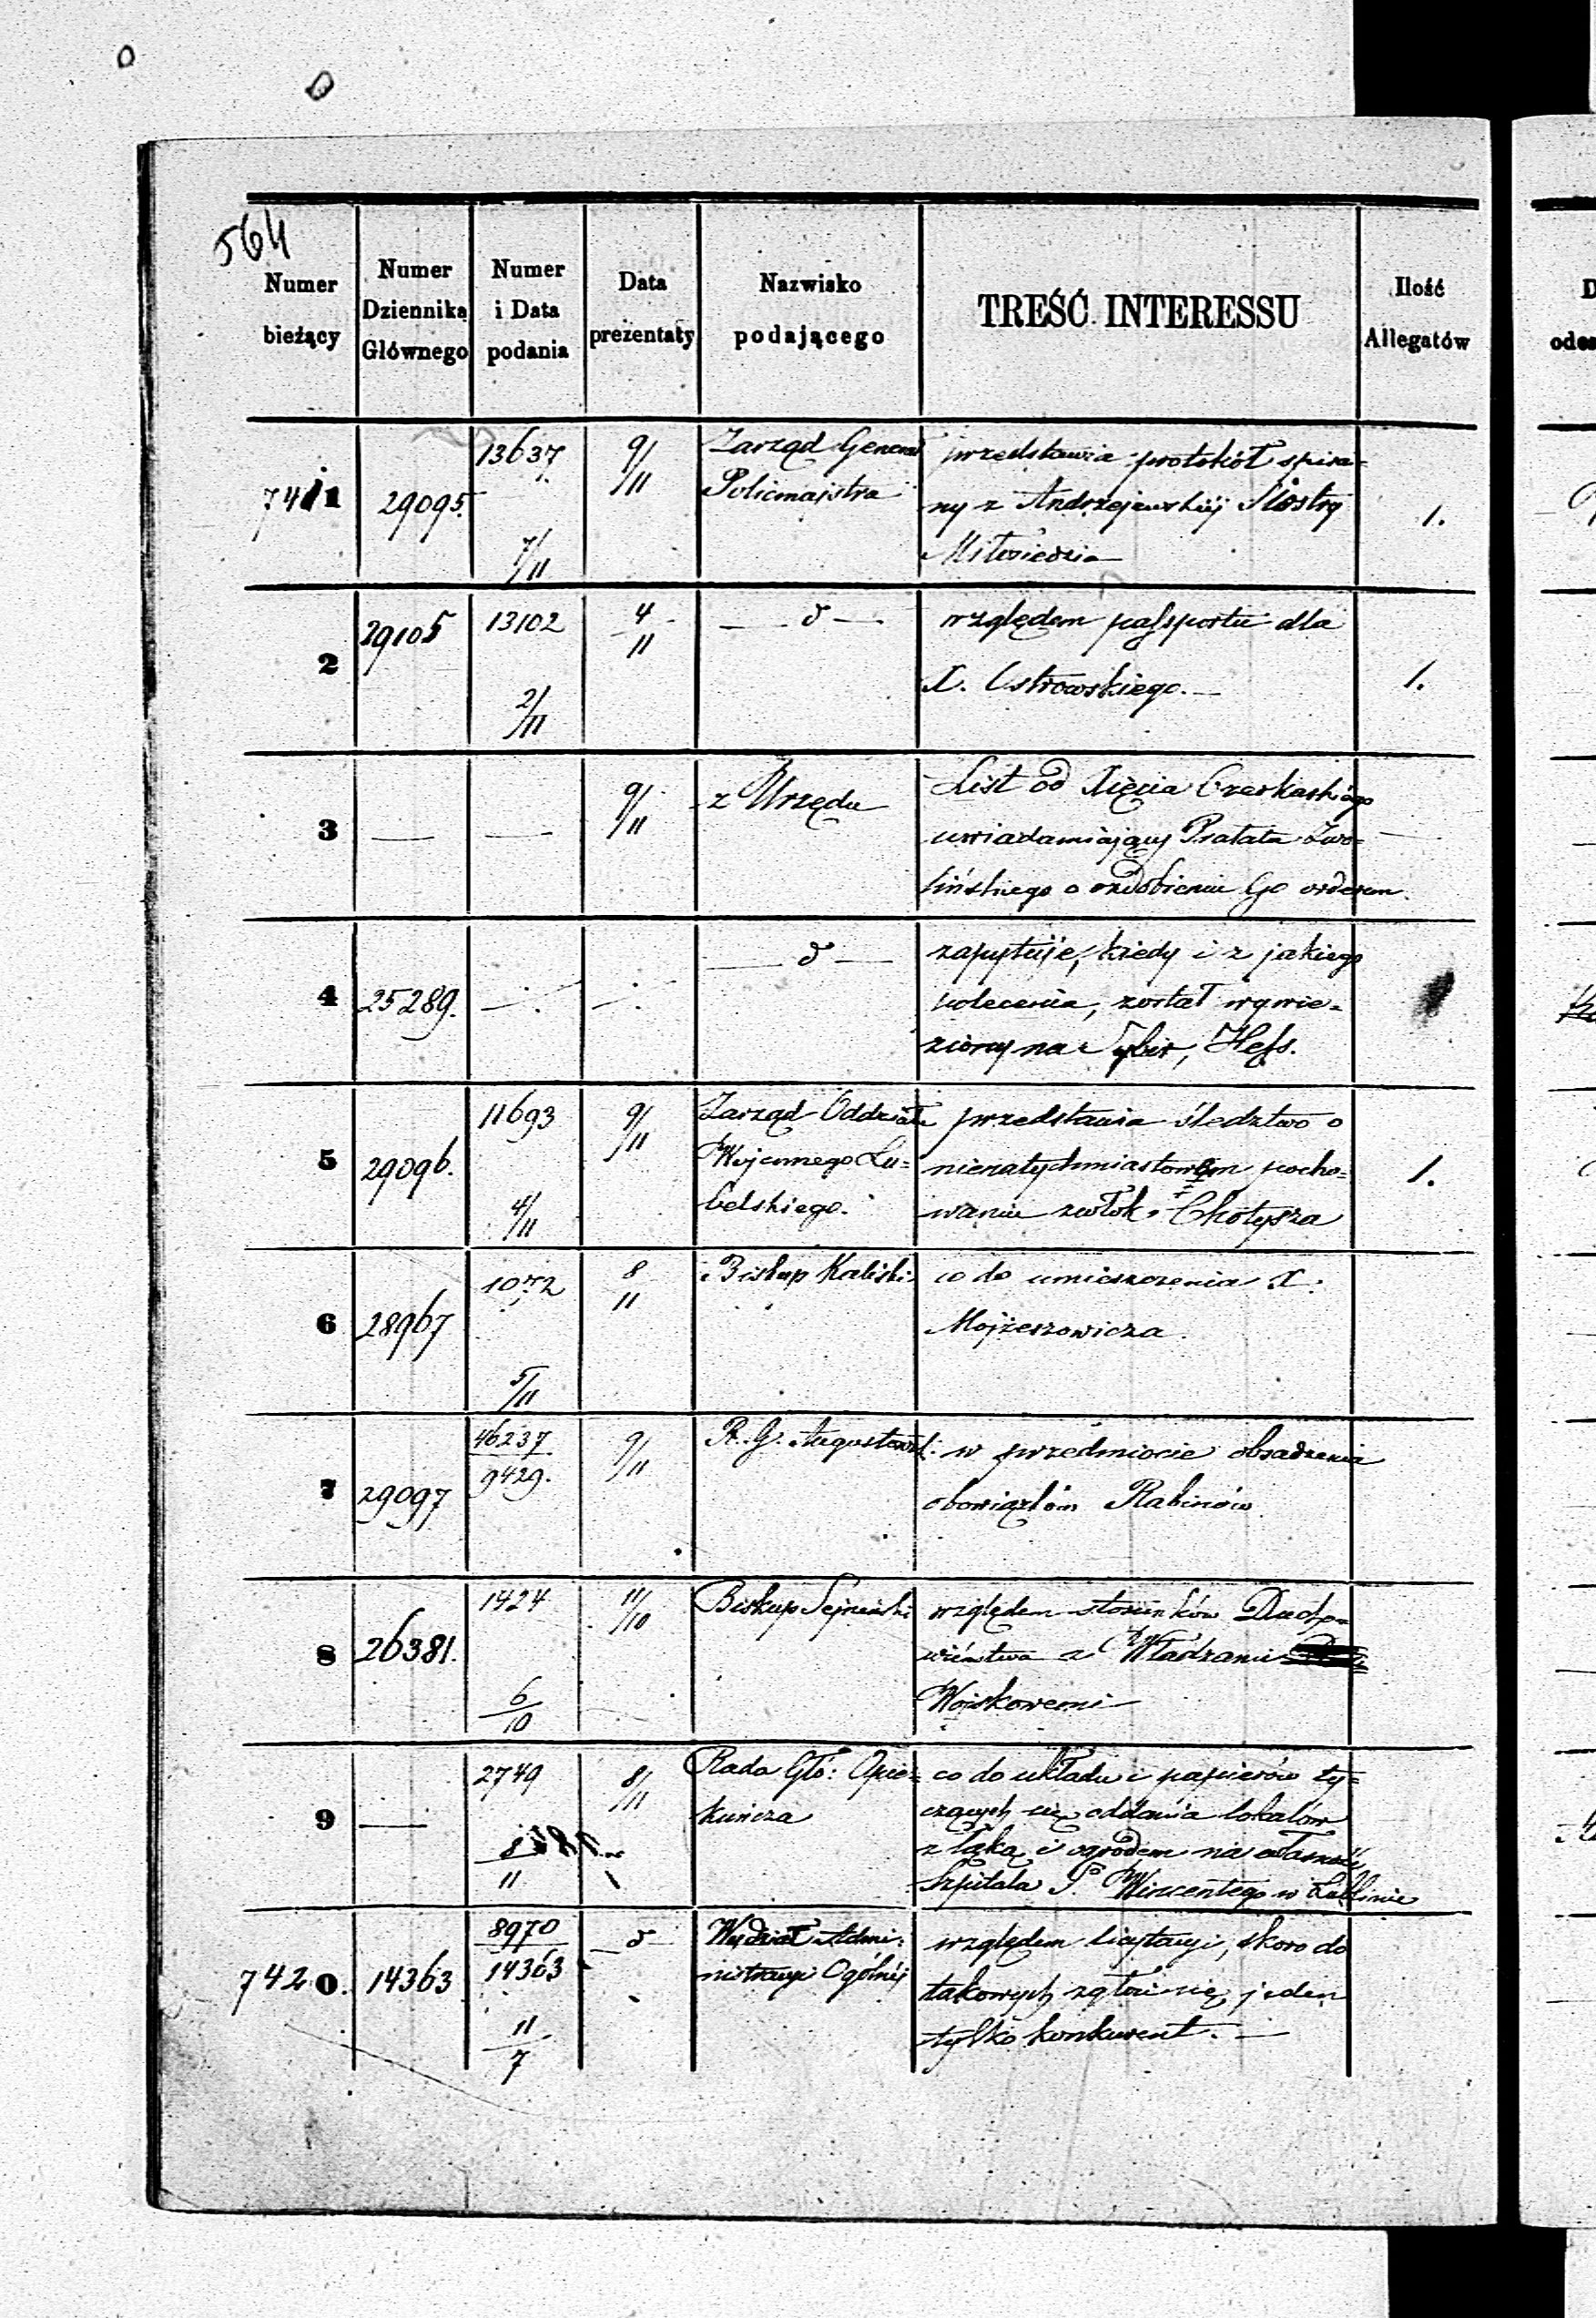 564
Numer
bieżący
Numer
Dziennika
Głównego
Numer
i Data
podania
Data
prezentaty
Nazwisko
podającego
TREŚĆ INTERESSU
Ilość
Allegatów
7411
29095.
13637
7/11
9/11
Zarząd General
Policmajstra
przedstawia protokół spisa=
ny z Andrzejewskiéj Siostry
Miłosierdzia
1.
2
29105
13102
2/11
4/11
— d —
względem passportu dla
X. Ostrowskiego. —
1.
3
—
—
9/11
z Urzędu
List od Xięcia Czerkaskiégo
uwiadamiający Prałata Zwo=
lińskiego o ozdobieniu Go orderem.
—
4
25289.
— d —
zapytuje, kiedy i z jakiego
polecenia, został wywie=
ziony na Sybir, Hess.
5
29096.
11693
4/11
9/11
Zarząd Oddziału
Wojennego Lu=
belskiego.
przedstawia śledztwo o
nienatychmiastowém pocho=
waniu zwłok Chołysza
1.
6
28967
1072
5/11
8/11
Biskup Kaliski
co do umieszczenia X.
Mojżeszowicza.
7
29097
46237
9429.
9/11
R. G. Augustowsk.
w przedmiocie obsadzenia
obowiązków Rabinów
8
26381.
1424
6/10
11/10
Biskup Sejneński
względem stosunków Ducho=
wieństwa z Władzami
Wojskowemi
9
—
2749
8/11
8/11
Rada Głó: Opie=
kuńcza
co do układu i papierów ty=
czących się oddania lokalów
z łąką i ogrodem na własność
Szpitala Sgo Wincentego w Lublinie
7420.
14363
8970
14363
11/7
— d —
Wydział Admi:
nistracyi Ogólnéj
względem licytacyi, skoro do
takowych zgłosi się jeden
tylko konkurent. —